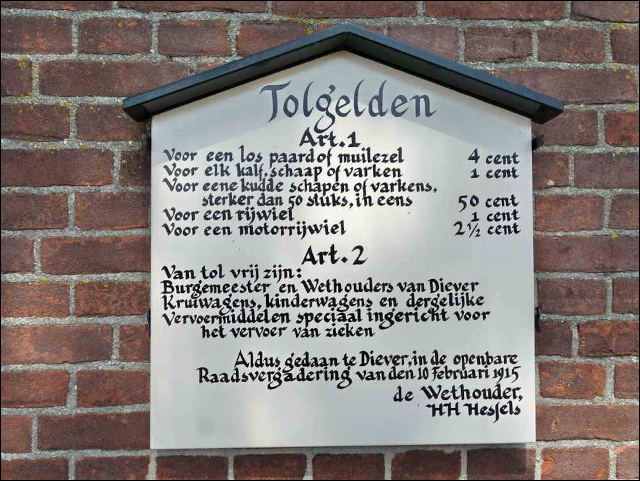 Tolgelden
Art.1
Voor een los paard of muilezel 4 cent
Voor elk kalf, schaap of varken 1 cent
Voor eene kudde schapen of varkens,
sterker dan 50 stuks, in eens 50 cent
Voor een rijwiel 1 cent
Voor een motorrijwiel 2½ cent
Art.2
Van tol vrij zijn:
Burgemeester en Wethouders van Diever
Kruiwagens, kinderwagens en dergelijke
Vervoermiddelen speciaal ingericht voor
het vervoer van zieken
Aldus gedaan te Diever, in de openbare
Raadsvergadering van den 10 Februari 1915
de Wethouder,
HH Hessels